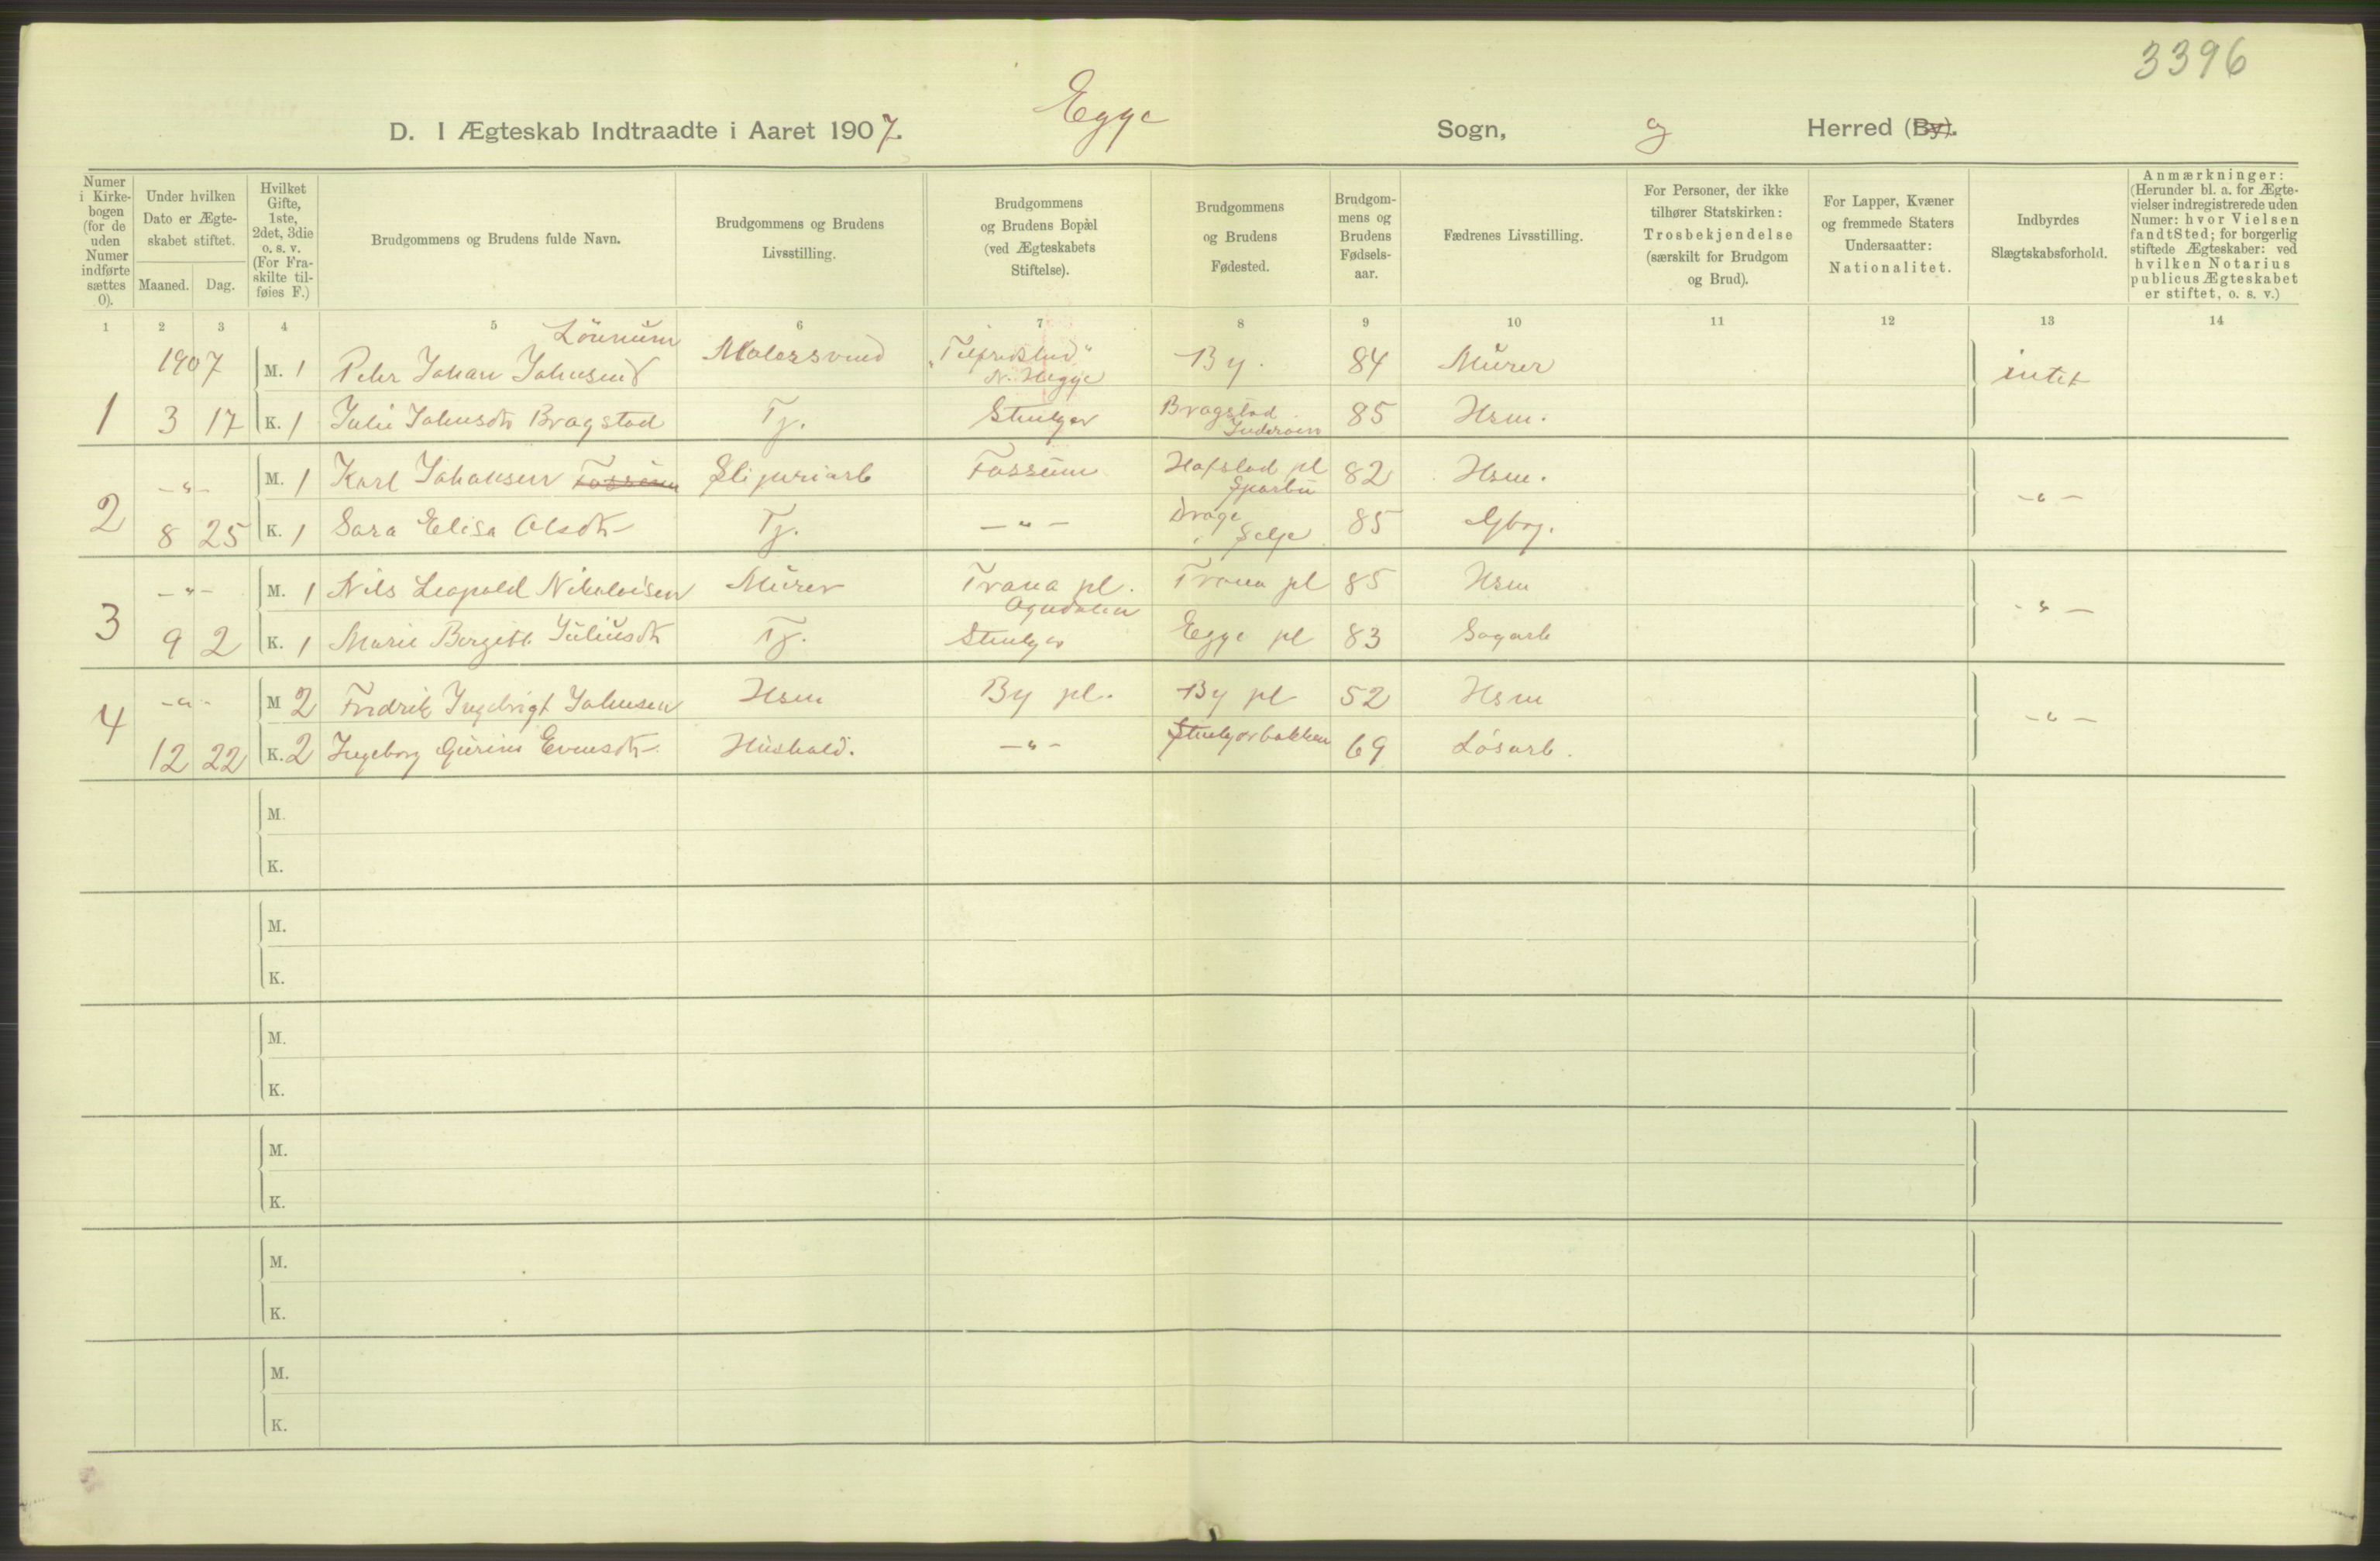 3396
D. I Ægteskab Indtraadte i Aaret 1907. Egge Sogn, og Herred (By).
Numer i Kirke-bogen (for de uden Numer indførte sættes 0).
Under hvilken Dato er Ægte-skabet stiftet.
Maaned. Dag.
Hvilket Gifte, 1ste, 2det, 3die o. s. v. (For Fra-skilte til-føies F.)
Brudgommens og Brudens fulde Navn.
Brudgommens og Brudens Livsstilling.
Brudgommens og Brudens Bopæl (ved Ægteskabets Stiftelse).
Brudgommens og Brudens Fødested.
Brudgom-mens og Brudens Fødsels-aar.
Fædrenes Livsstilling.
For Personer, der ikke tilhører Statskirken: Trosbekjendelse (særskilt for Brudgom og Brud).
For Lapper, Kvæner og fremmede Staters Undersaatter: Nationalitet.
Indbyrdes Slægtskabsforhold.
Anmærkninger: (Herunder bl. a. for Ægte-vielser indregistrerede uden Numer: hvor Vielsen fandt Sted; for borgerlig stiftede Ægteskaber: ved hvilken Notarius publicus Ægteskabet er stiftet, o. s. v.)
1 2 3 4 5 6 7 8 9 10 11 12 13 14
Lönnum
1907 M. 1 Peter Johan Johnsen Malersvend N. Hegge By. 84 Murer intet
1 3 17 K. 1 Julie Johnsdtr Bragstad Tj. Stenlyør Bragstad Inderøen 85 Hsm.
-"- M. 1 Karl Johansen Fossum Sliperiarb Fossum Hafstad pl Sparbu 82 Hsm. -"-
2 8 25 K. 1 Sara Elisa Olsdtr Tj. -"- Drage Selje 85 Gbrg.
-"- M. 1 Nils Leopold Nikolaisen Murer Trana pl. Ogndalen Trana pl 85 Hsm -"-
3 9 2 K. 1 Marie Bergitte Juliusdtr Tj. Egge pl 83 Sagarb
-"- M 2 Fredrik Ingebrigt Johnsen Hsm By pl. By pl 52 Hsm -"-
4 12 22 K. 2 Ingeborg Gurine Evensdtr Hushold. -"- 69 Løsarb.
M.
K.
M.
K.
M.
K.
M.
K.
M.
K.
M.
K.